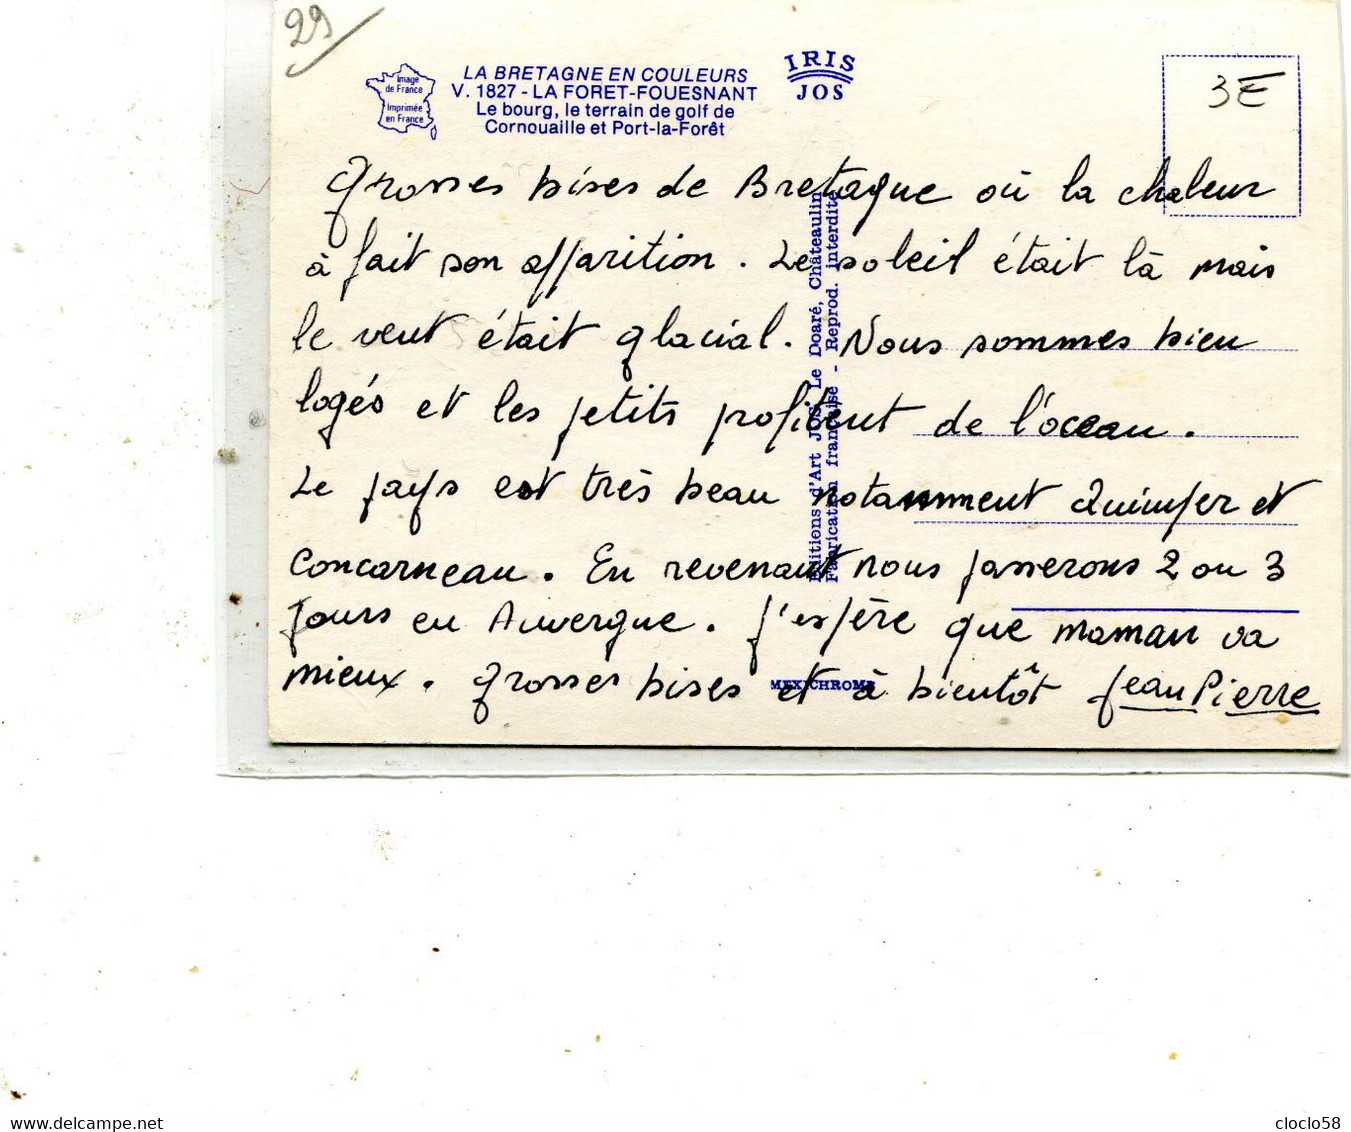 29
LA BRETAGNE EN COULEURS
V. 1827 - LA FORET-FOUESNANT
Le bourg, le terrain de golf de
Cornouaille et Port-la-Forêt
Image
de France
Imprimée
en France
IRIS
JOS
3E
Grosses bises de Bretagne où la chaleur
à fait son apparition. Le soleil était là mais
le vent était glacial. Nous sommes bien
logés et les petits profitent de l'océan.
Le pays est très beau notamment Quimper et
Concarneau. En revenant nous passerons 2 ou 3
jours en Auvergne. J'espère que maman va
mieux. Grosses bises et à bientôt Jean Pierre
Editions d'Art JOS Le Doaré, Châteaulin
Fabrication française - Reprod. interdite
MEXICHROME
cloclo58